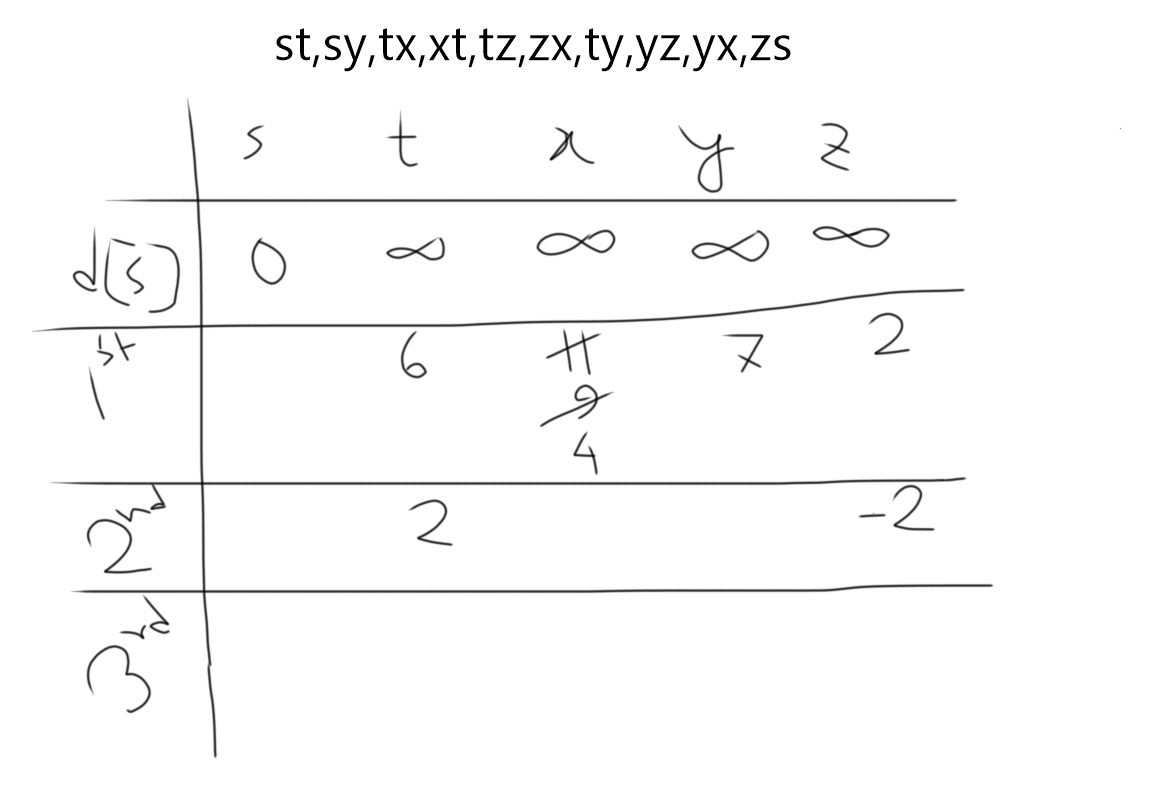 st,sy,tx,xt,tz,zx,ty,yz,yx,zs
s t x y z
d[s] 0 ∞ ∞ ∞ ∞
1st 6 11 7 2
9
4
2nd 2 -2
3rd